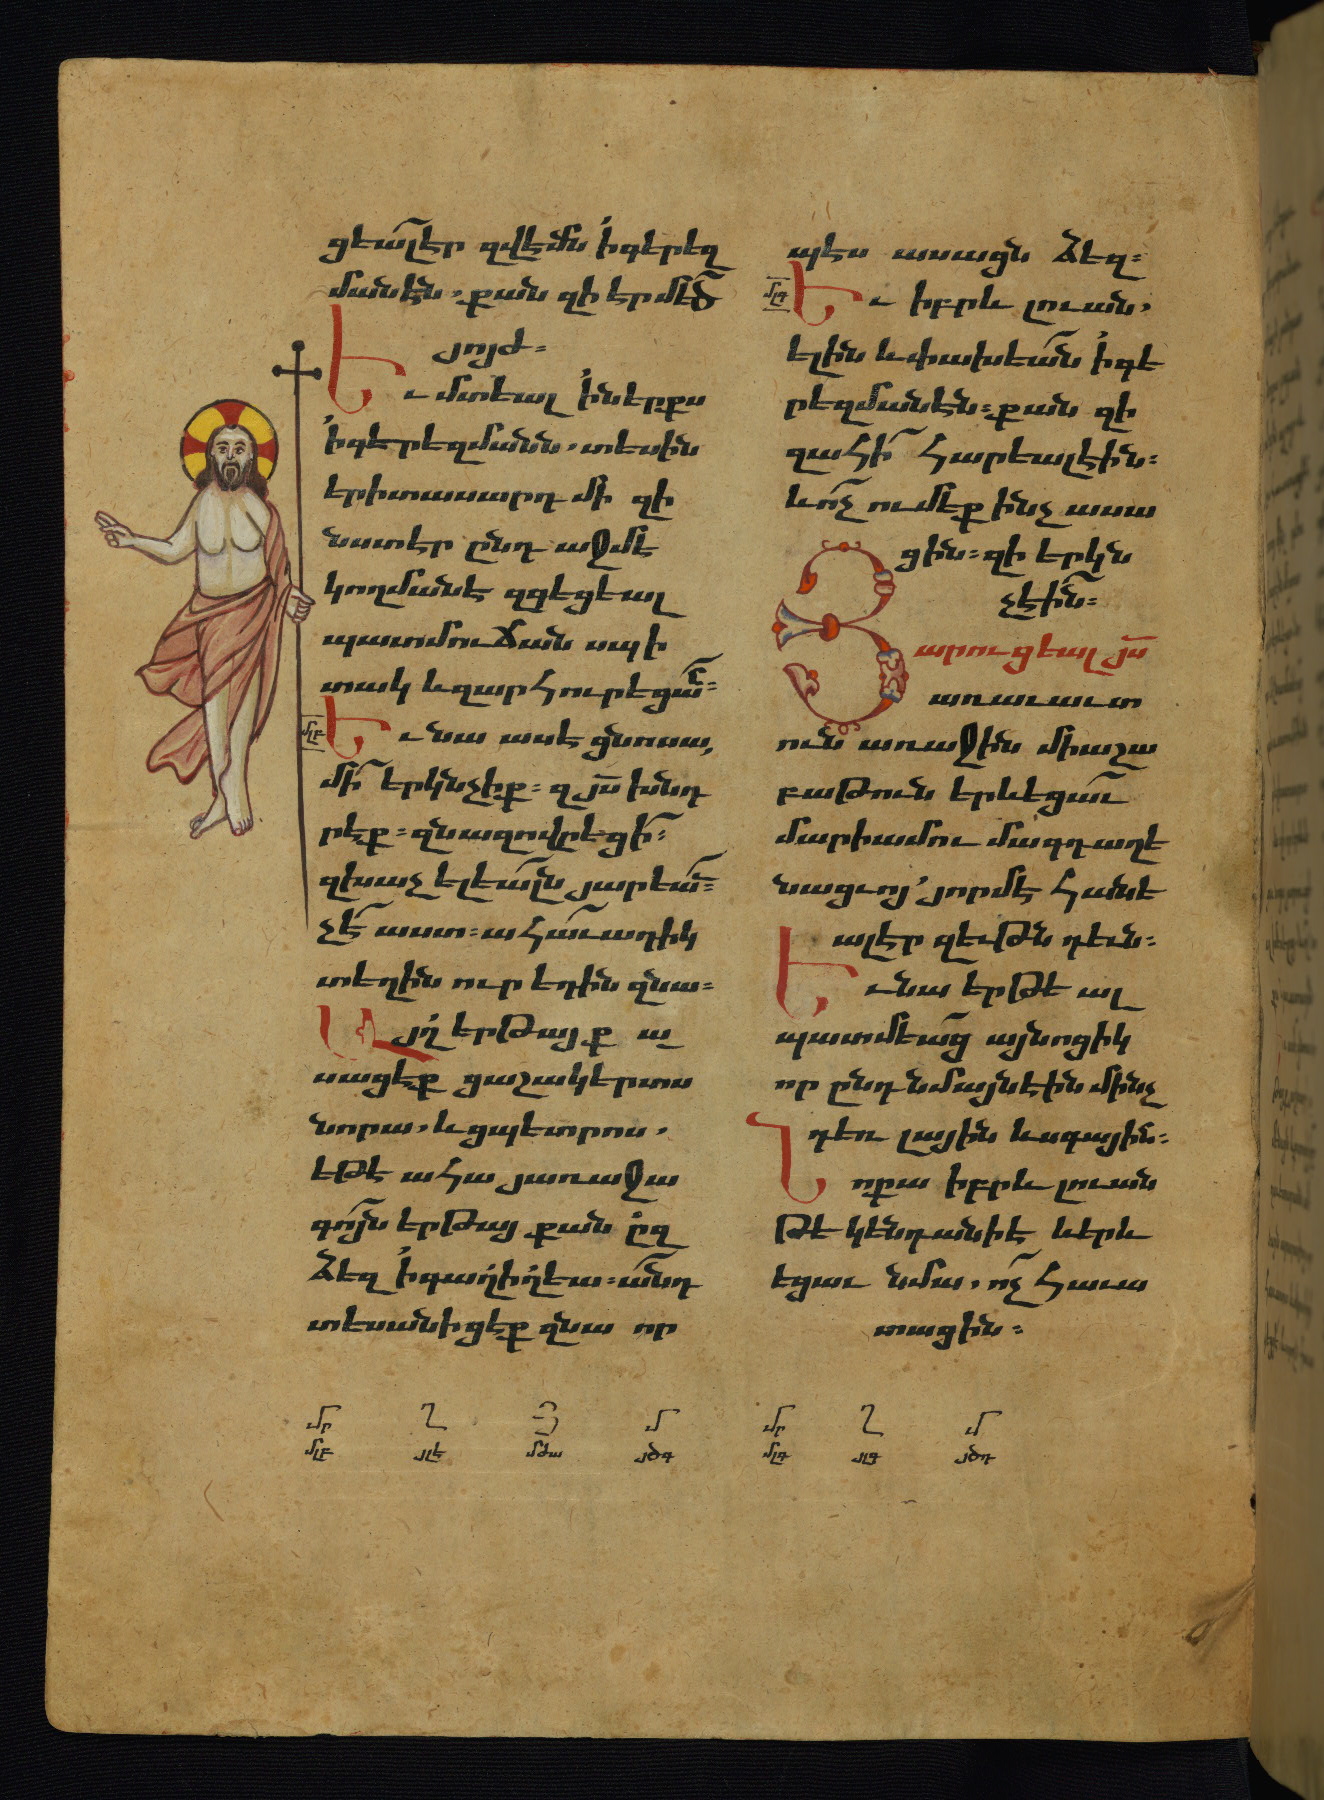 ցեալ էր զվէմն ՚ի գերեզ
մանէն, քան զի էր մեծ
յոյժ։
Եւ մտեալ ՚ի ներքս
՚ի գերեզմանն, տեսին
երիտասարդ մի զի
նստէր ընդ աջմէ
կողմանէ զգեցեալ
պատմուճան սպի
տակ և զարհուրեցան։
մլբ Եւ նա ասէ ցնոսա,
մի երկնչիք։ զյս խնդ
րէք։ զնազովրեցի։
զխաչ ելեալն յարեաւ։
չէ աստ։ ահաւադիկ
տեղին ուր եդին զնա։
Այլ երթայք ա
սացէք ցաշակերտս
նորա, և ցպետրոս,
եթէ ահա յառաջա
գոյն երթայ քան ըզ
ձեզ ՚ի գալիլեա։ անդ
տեսանիցէք զնա որ
պէս ասացն ձեզ։
մլգ Եւ իբրև լուան,
ելին և փախեան ՚ի գե
րեզմանէն։ քան զի
զահի հարեալ էին։
և ոչ ումեք ինչ ասա
ցին։ զի երկն
չէին։
Յարուցեալ յս
առաւաւտ
ուն առաջին միաշա
բաթուն երևեցաւ
մարիամու մագդաղե
նացւոյ՚ յորմէ հանե
ալ էր զեւթն դեւն։
Եւ նա երթեալ
պատմեաց այնոցիկ
որ ընդ նմայն էին մինչ
դեռ լային և սգային։
Նոքա իբրև լուան
թէ կենդանի է և երև
եցաւ նմա, ոչ հաւա
տացին։
մր ղ յ մ մր ղ մ
մլբ յլե մծա յծգ մլգ յլզ յծդ